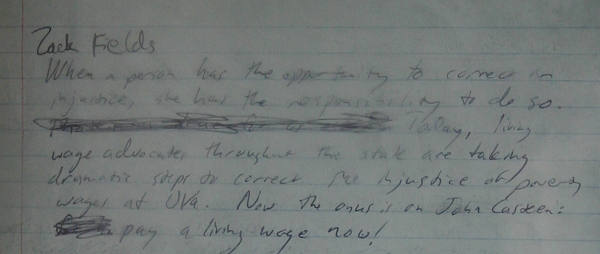 Zack Fields
When a person has the opportunity to correct an
injustice, she has the responsibility to do so.
Today, living
wage advocates throughout the state are taking
dramatic steps to correct the injustice of poverty
wages at UVa. Now the onus is on John Casteen:
pay a living wage now!